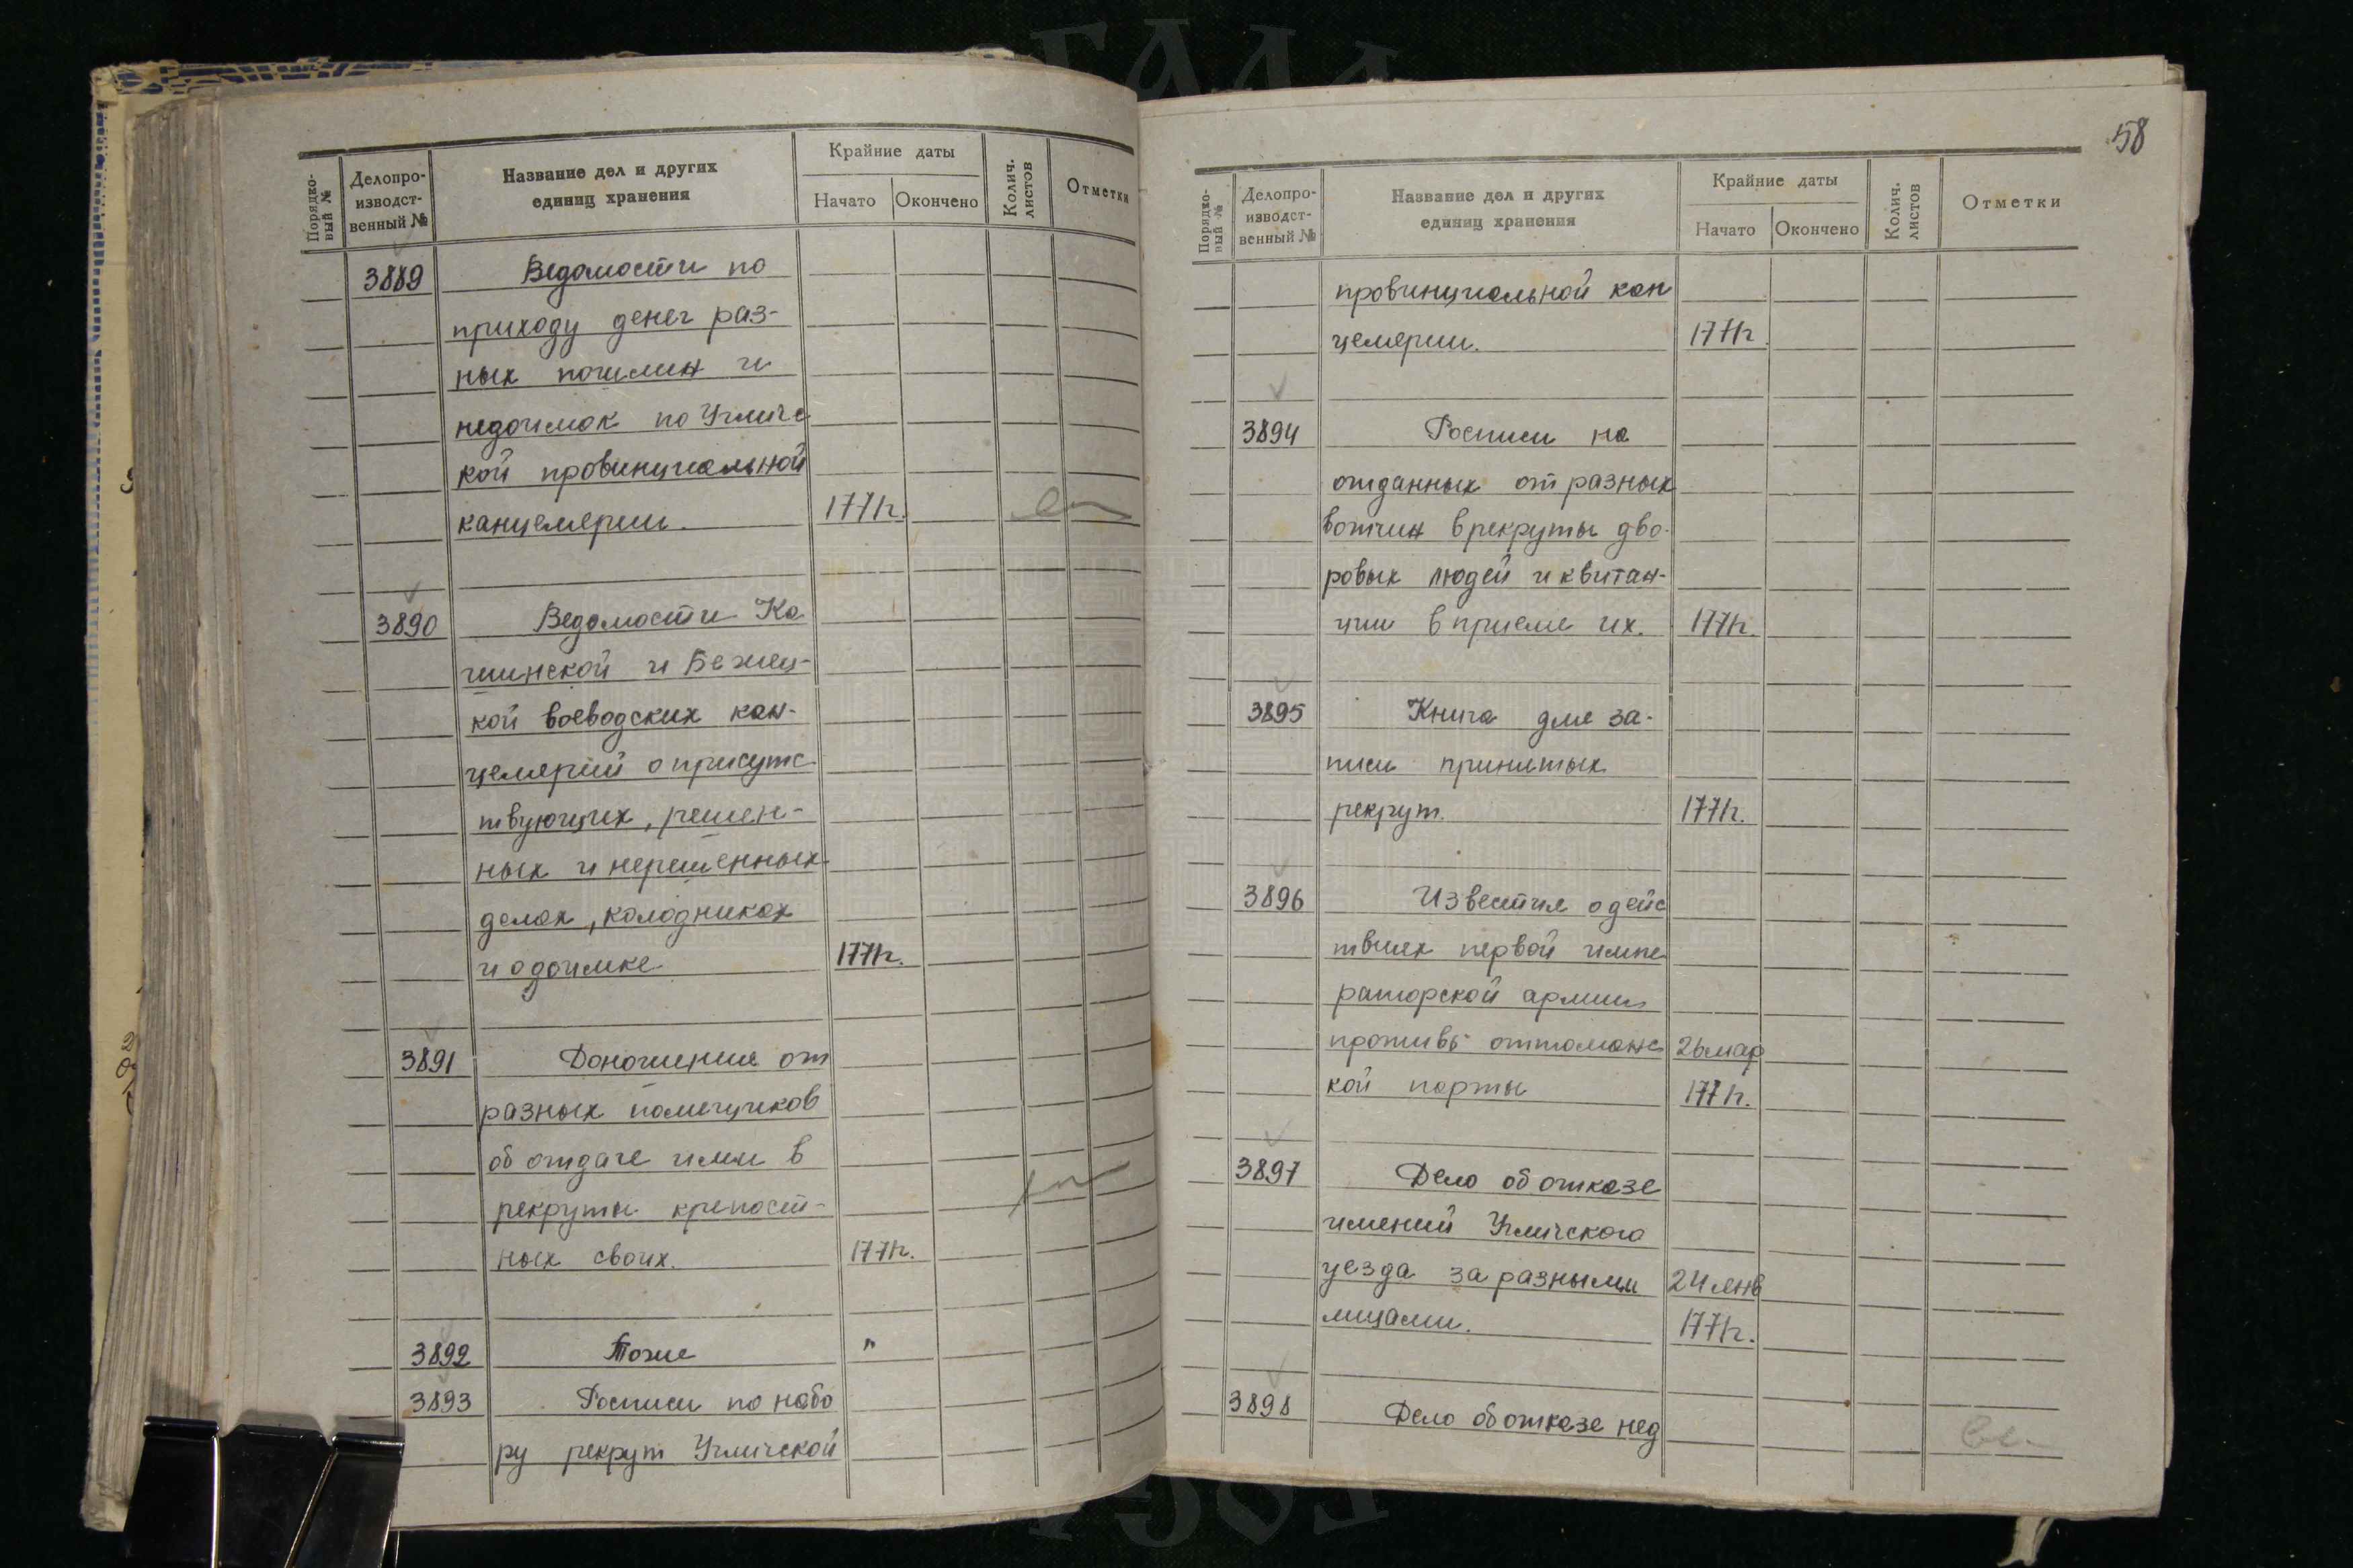 Порядко-
вый №
Делопро-
изводст-
венный №
Название дел и других
единиц хранения
Крайние даты
Начато
Окончено
Колич.
листов
Отметки
3889 Ведомости по
приходу денег раз-
ных пошлин и
недоимок по Угличс
кой провинциальной
канцелярии. 1771г.
3890 Ведомости Ка
шинской и Бежец-
кой воеводских кан-
целярий о присутс
твующих, решен-
ных и нерешенных
делах, колодниках
и о доимке 1771г.
3891 Доношения от
разных помещиков
об отдаче ими в
рекруты крепост-
ных своих. 1771г.
3892 Тоже "
3893 Росписи по набо
ру рекрут Угличской
58
Порядко-
вый №
Делопро-
изводст-
венный №
Название дел и других
единиц хранения
Крайние даты
Начато
Окончено
Колич.
листов
Отметки
провинциальной кан
целярии. 1771г
3894 Росписи на
отданных от разных
вотчин в рекруты дво-
ровых людей и квитан-
ции в приеме их. 1771г.
3895 Книга для за-
писи принятых
рекрут. 1771г.
3896 Известия о дейс
твиях первой импе
раторской армии
противъ оттоманс 26 мар
кой порты 1771г.
3897 Дело об отказе
имений Угличского
уезда за разными 24 янв
лицами. 1771г.
3898 Дело об отказе нед